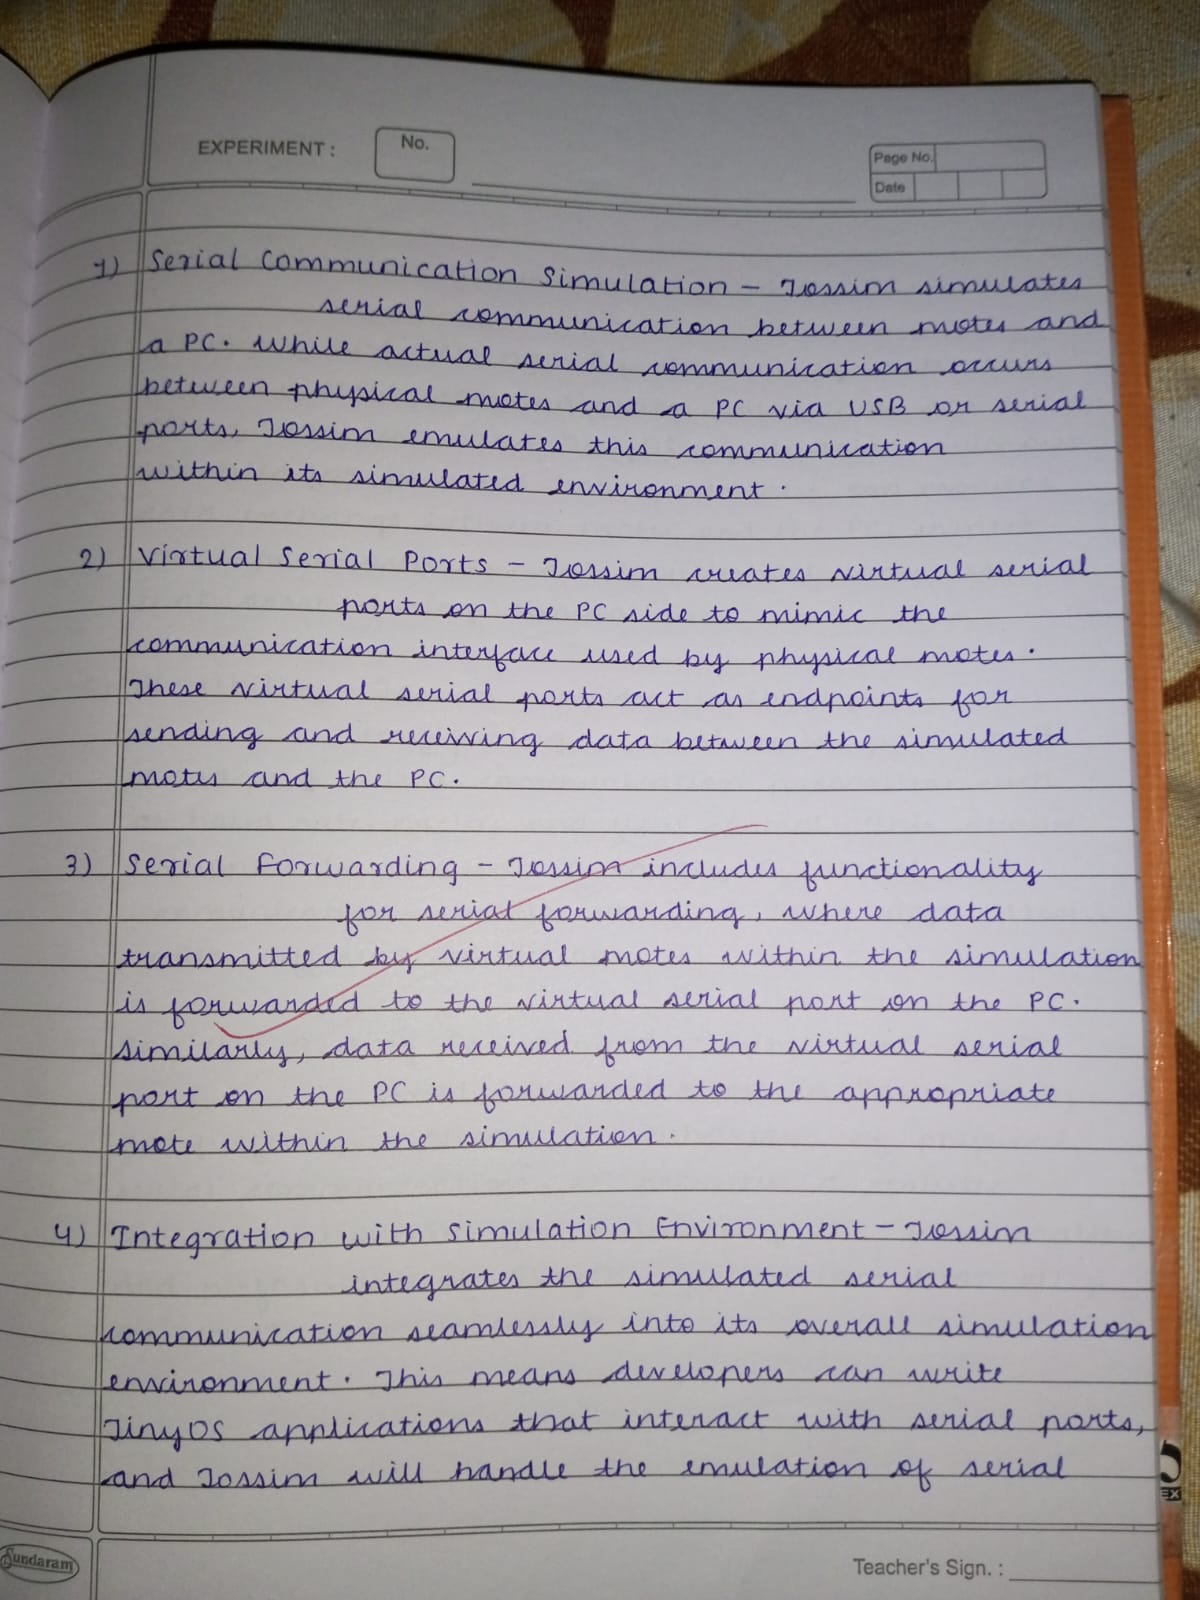 EXPERIMENT :
No.
Page No.
Date
1) Serial Communication Simulation - Tossim simulates
serial communication between motes and
a PC. While actual serial communication occurs
between physical motes and a PC via USB or serial
ports, Tossim emulates this communication
within its simulated environment.
2) Virtual Serial Ports - Tossim creates virtual serial
ports on the PC side to mimic the
communication interface used by physical motes.
These virtual serial ports act as endpoints for
sending and receiving data between the simulated
motes and the PC.
3) Serial Forwarding - Tossim includes functionality
for serial forwarding, where data
transmitted by virtual motes within the simulation
is forwarded to the virtual serial port on the PC.
Similarly, data received from the virtual serial
port on the PC is forwarded to the appropriate
mote within the simulation.
4) Integration with Simulation Environment - Tossim
integrates the simulated serial
communication seamlessly into its overall simulation
environment. This means developers can write
TinyOS applications that interact with serial ports,
and Tossim will handle the emulation of serial
Sundaram
Teacher's Sign. :